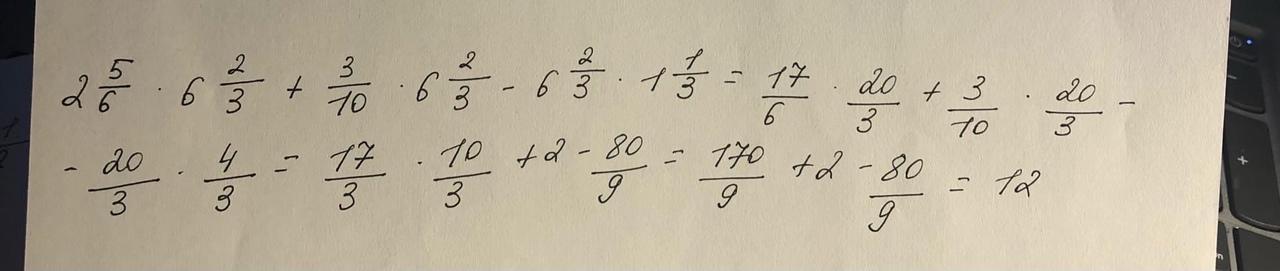 2 5/6 · 6 2/3 + 3/10 · 6 2/3 - 6 2/3 · 1 1/3 = 17/6 · 20/3 + 3/10 · 20/3 -
- 20/3 · 4/3 = 17/3 · 10/3 + 2 - 80/9 = 170/9 + 2 - 80/9 = 12